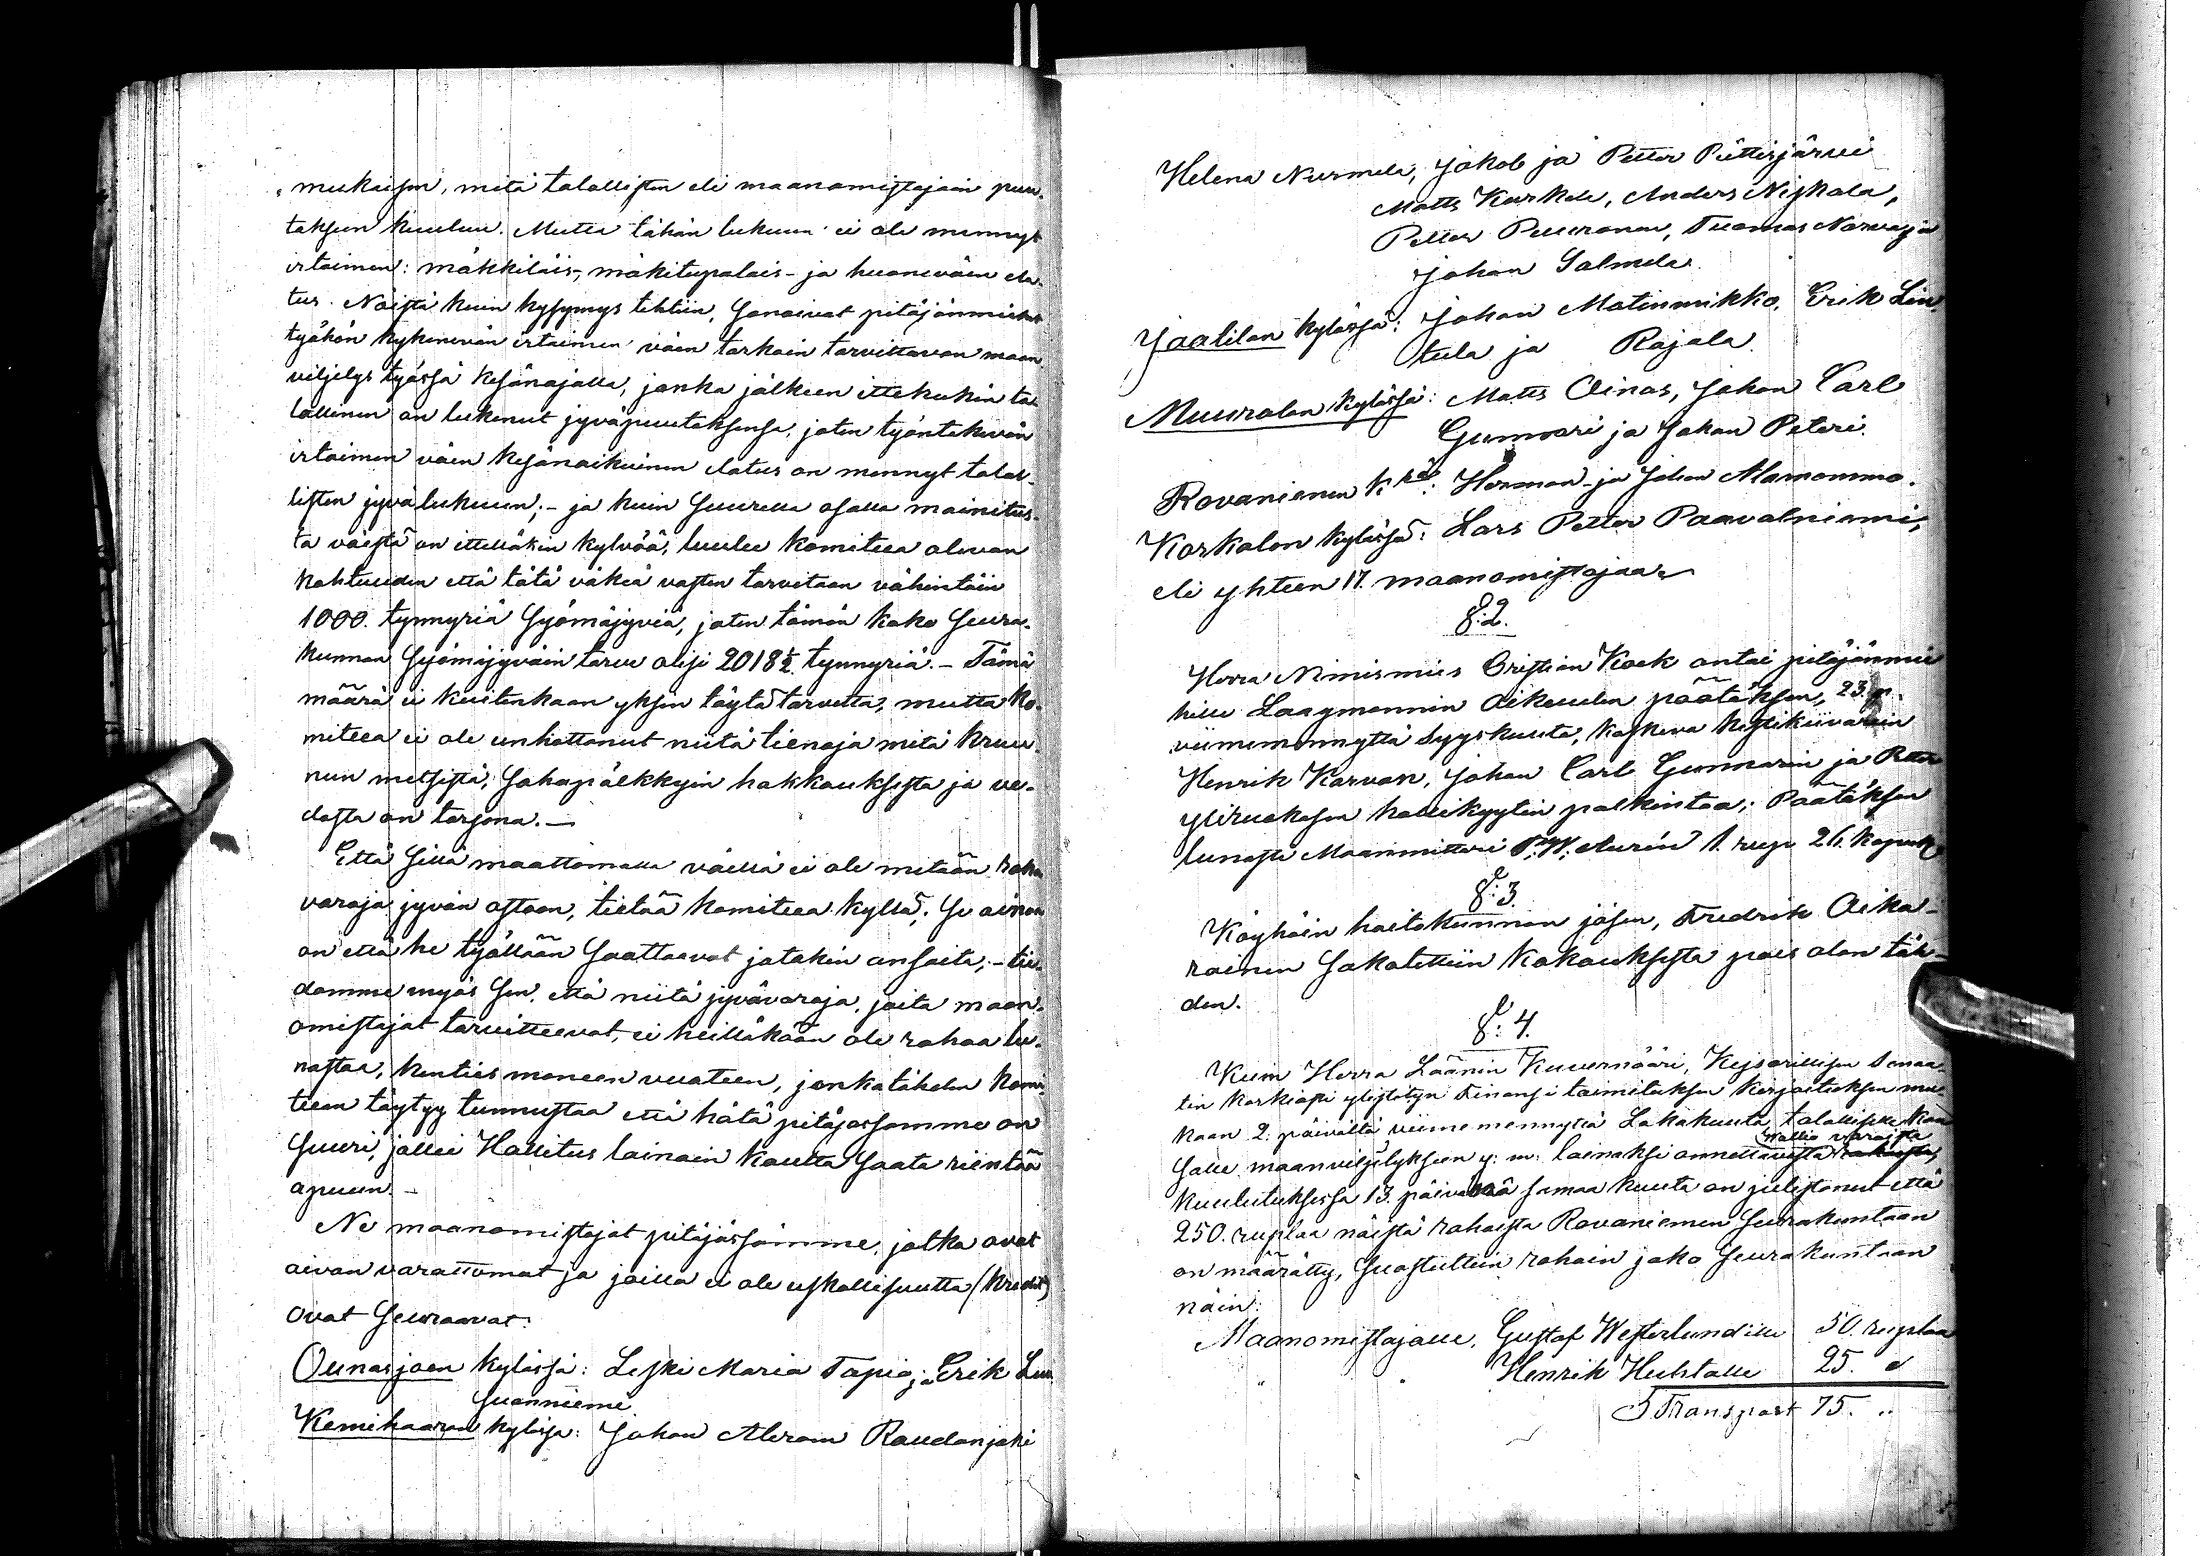 mukaisen, mitä talollisten eli maanomistajain puu-
takseen kuuluu. Mutta tähän lukuun ei ole mennyt
irtaimen: mäkkiläis-, mäkitupalais- ja huoneväen ela-
tus. Näistä kuin kysymys tehtiin, sanoivat pitäjänmiehet
työhön kykenevän irtaimen väen tarkoin tarvittavan maan-
viljelys työssä kesänajalla, jonka jälkeen ittekukin ta-
lollinen on lukenut jyväpuutoksensa, joten työntekevän
irtaimen väen kesänaikuinen elatus on mennyt talol-
listen jyvälukuun; - ja kuin suurella osalla mainitus-
ta väestä on itelläkin kylvöä, luulee komitea olevan
kohtuuden että tätä väkeä vasten tarvitaan vähintäin
1000. tynnyriä syömäjyviä, joten tämän koko seura-
kunnan syömäjyväin tarve olisi 2018½ tynnyriä. - Tämä
määrä ei kuitenkaan yksin täytä tarvetta, mutta ko-
miteea ei ole unhottanut niitä tienaja mitä kruu-
nun metsistä, sahapälkkyin hakkauksesta ja ve-
dosta on tarjona. -
Että sillä maattomalla väellä ei ole mitään raha
varoja jyvän ostoon, tietää komiteea kyllä; se ainoa
on että he työllään saattaavat jotakin ansaita; - tie-
damme myös sen, että niitä jyvävaroja, joita maan-
omistajat tarvitteevat, ei heilläkään ole rahaa lu-
nastaa, kenties moneen vuoteen, jonkatähden komi-
teean täytyy tunnustaa että hätä pitäjässämme on
suuri, jollei Hallitus lainain kautta saata rientää
apuun. -
Ne maanomistajat pitäjässämme, jotka ovat
aivan varattomat ja joilla ei ole uskallisuutta (kredit)
ovat seuraavat:
Ounasjoen kylässä: Leski Maria Tapio, ja Erik Luu-
suanniemi
Kemihaaran kylässä: Johan Abram Raudanjoki
Helena Nurmela, Jakob ja Petter Piittisjärvi
Matts Kurkela, Anders Niskala,
Petter Puuronen, Tuomas Norva ja
Johan Salmela.
Jaatilan kylässä: Johan Matinmikko, Erik Lin-
tula ja Rajala.
Muurolan kylässä: Matts Oinas, Johan Carl
Gummari ja Johan Peteri.
Rovaniemen k:ssä: Herman ja Johan Alamommo.
Korkalon kylässä: Lars Petter Paavalniemi,
eli yhteen 17. maanomistajaa.
§: 2.
Herra Nimismies Cristian Kock antoi pitäjänmie
hille Laagmannin Oikeuden päätöksen, 23 p.
viimemennyttä Syyskuuta, koskeva kestikiivarin
Henrik Karvon, Johan Carl Gummarin ja Petter
Yliruokasen hollikyytin palkintoa; Päätöksen
lunasti Maanmittari P. W. Aurén 1. rupl 26. kopek
§: 3.
Köyhäin hoitokunnan jäsen, Fredrik Oika-
rainen sakotettiin kokouksesta pois olon täh-
den.
§: 4.
Kuin Herra Läänin Kuvernööri, Kejsarillisen Senaa-
tin korkiasti ylistetyn Finansi toimituksen kirjoituksen mu-
kaan 2. päivältä viime mennyttä Lokakuuta, talollisille
salle maanviljelykseen y: m: lainaksi annettavista Wallio varoista
kuulutuksessa 13. päivänä samaa kuuta on julistanut että
250. ruplaa näistä rahoista Rovaniemen seurakuntaan
on määrätty, suostuttiin rahain jako seurakuntaan
näin:
Maanomistajalle, Gustaf Westerlundille 50. ruplaa
" " Henrik Huhtalle 25. "
Transport 75. "